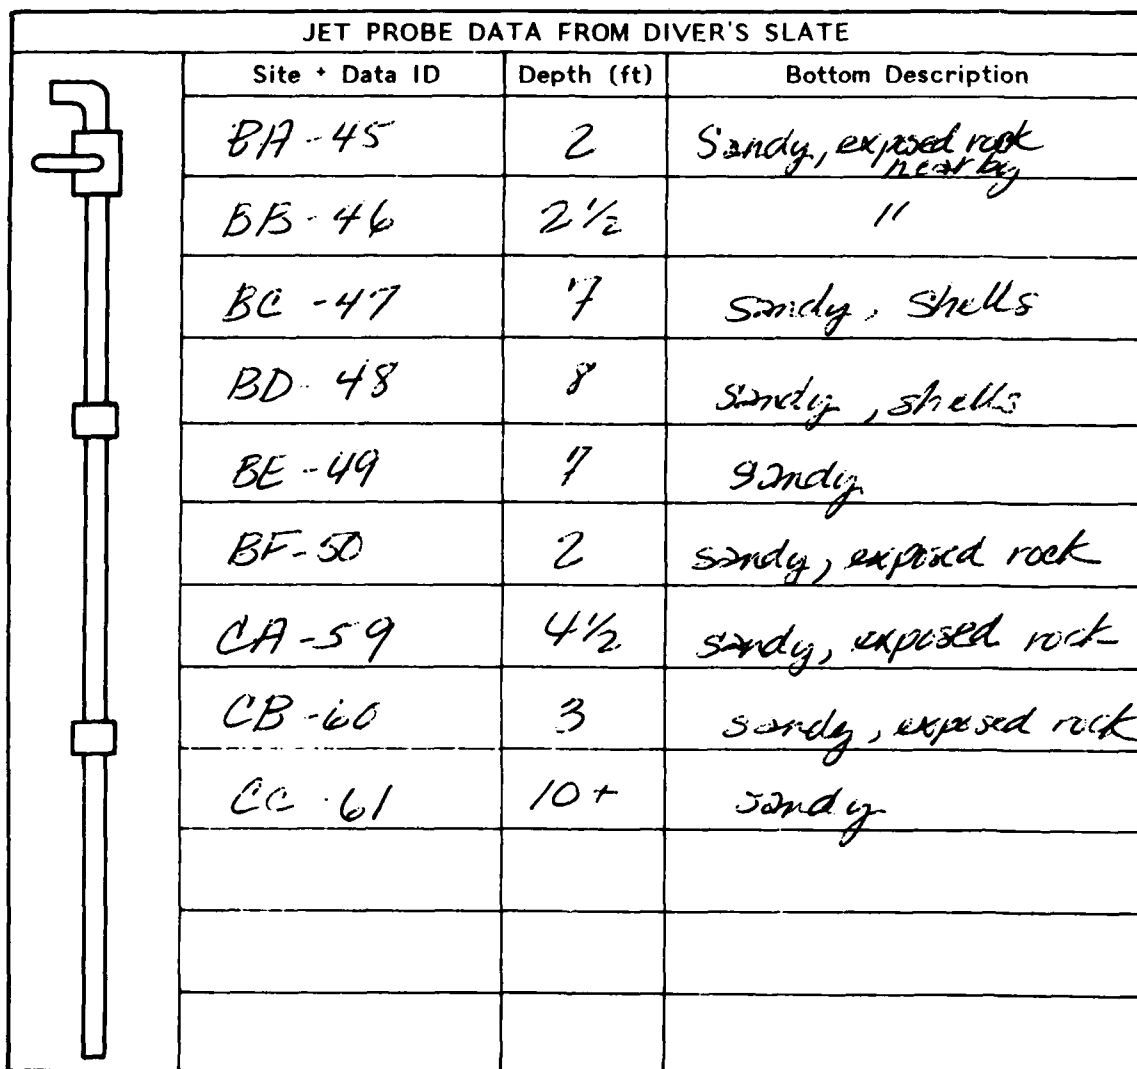 JET PROBE DATA FROM DIVER'S SLATE
Site + Data ID Depth (ft) Bottom Description
BA-45 2 Sandy, exposed rock
nearby
BB-46 2 1/2 "
BC-47 7 sandy, shells
BD-48 8 sandy, shells
BE-49 7 sandy
BF-50 2 sandy, exposed rock
CA-59 4 1/2 sandy, exposed rock
CB-60 3 sandy, exposed rock
CC-61 10+ sandy